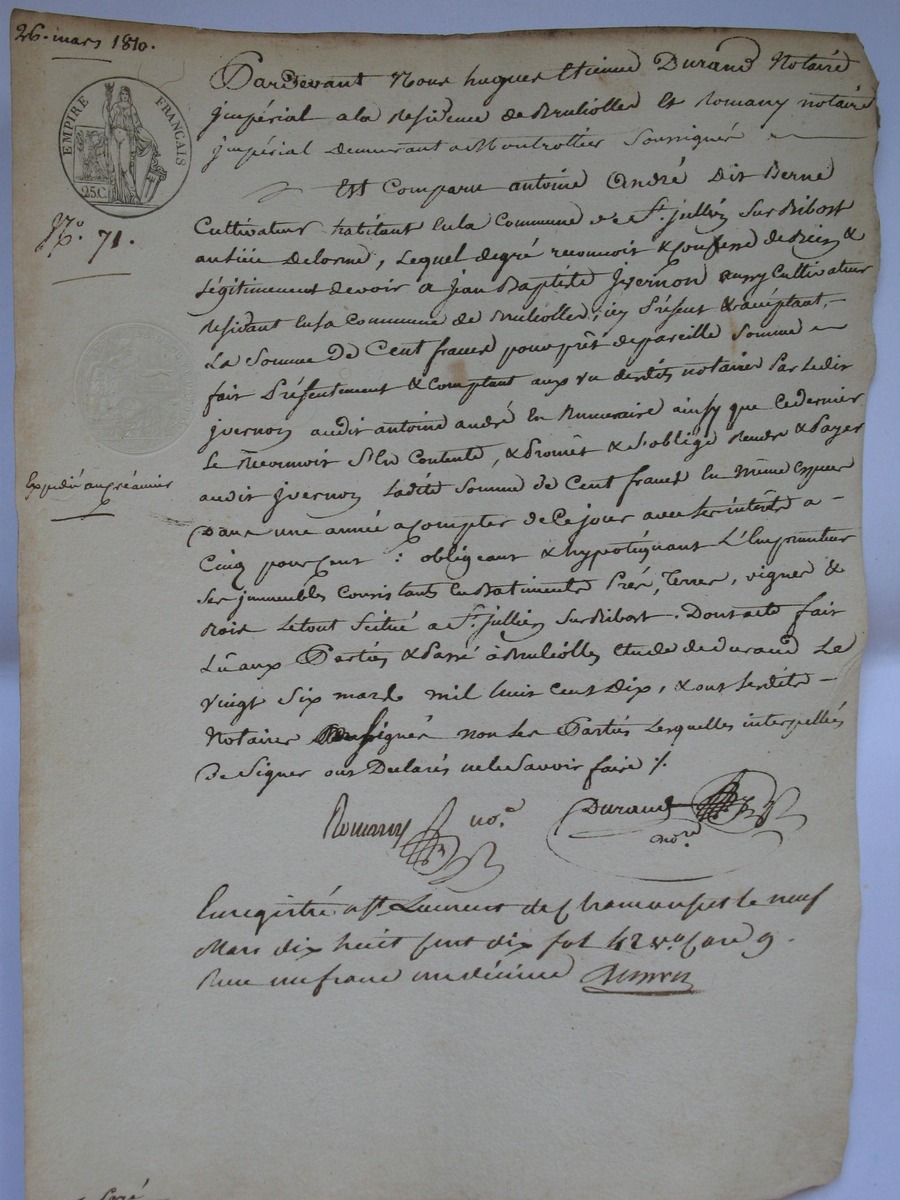 26. mars 1810.
EMPIRE FRANÇAIS
25C
Pardevant Nous hugues Etienne Durand Notaire
jmpérial ala Residence de Brulliolles Et Romany notaire
jmpérial demeurant a Montrottier Soussignés
Est Comparu antoine André Dit Berne
N.° 71.
Cultivateur habitant en la Commune de St. jullien Sur Bibost
Delorme, Lequel degré reconnoit & confesse de Bien &
Légitimement devoir a jean Baptiste jvernon aussy Cultivateur
residant en la Commune de Brulliolles, icy Présent & acceptant,
La Somme de Cent francs pour prêt de pareille Somme
fait Présentement & Comptant aux vu desdits notaires Par Ledit
jvernon audit antoine andré En Numeraire ainsy que Cedernier
Le Reconnoit S'En Contente, & Promet & s'oblige Rendre & Payer
Expédié au créancier
audit jvernon Ladite Somme de Cent francs En Même Espece
Dans une année a Compter de Ce jour avec les intérêts a
Cinq pour Cent : obligeant & hypotéquant L'Emprunteur
Ses jmmeubles Consistants En Batiments Prés, Terres, vignes &
Bois Le tout Scitué a St. jullien Sur Bibost. Dont acte fait
Lu aux Parties & Passé à Brulliolles Etude de Durand Le
vingt Six mars mil huit Cent Dix, & ont Lesdits
Notaires signés non Les Parties Lesquelles interpellées
De Signer ont Declarés ne le Savoir faire ./.
Romany no.e
Durand
no.re
Enregistré a St. Laurent de Chamousset le neuf
Mars dix huit cent dix fol 42 v.o Case 9.
Recu un franc un décime